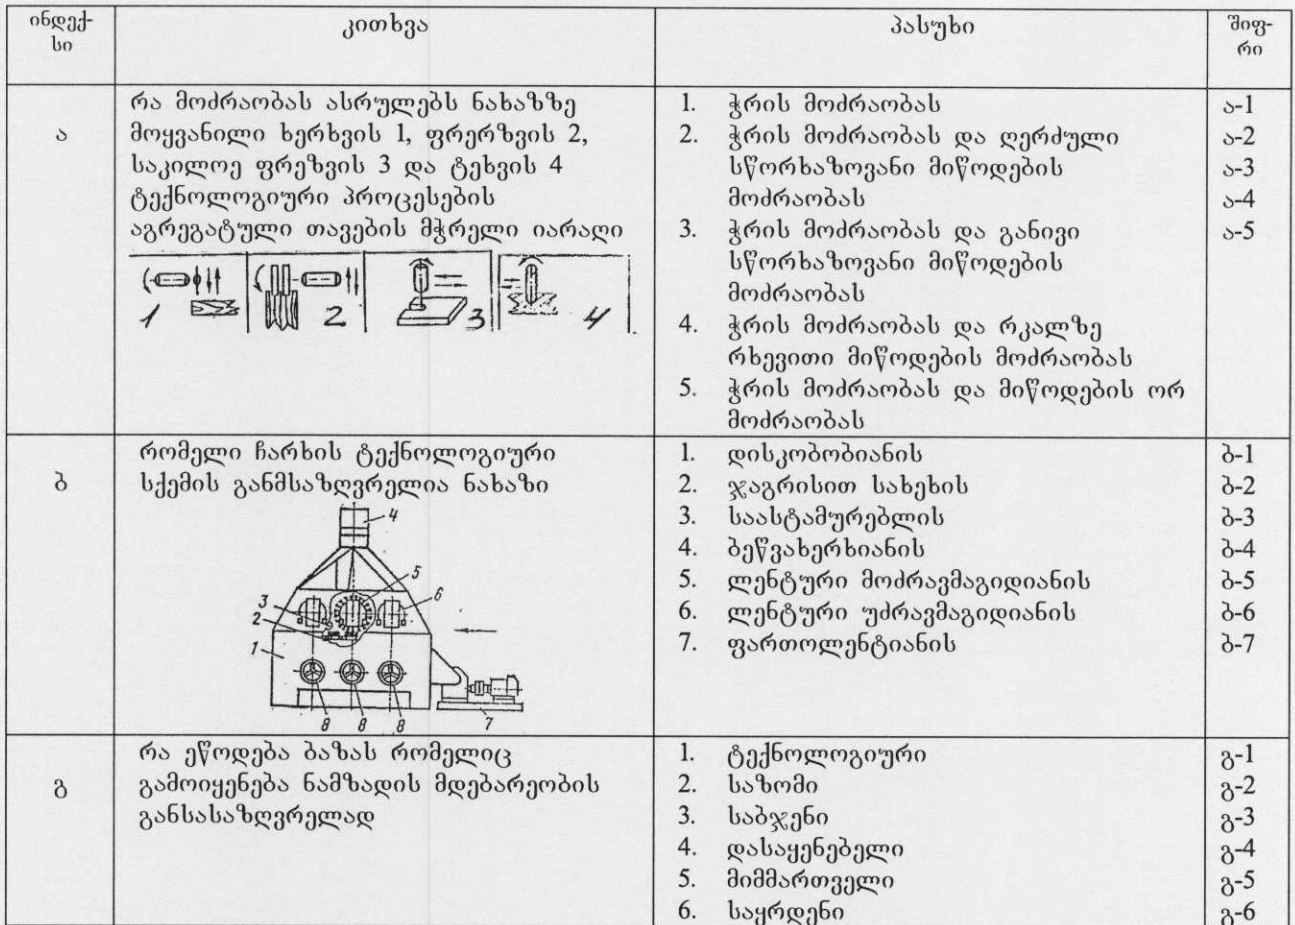 ინდექ-
სი
კითხვა
პასუხი
შიფ-
რი
ა
რა მოძრაობას ასრულებს ნახაზზე
მოყვანილი ხერხვის 1, ფრერზვის 2,
საკილოე ფრეზვის 3 და ტეხვის 4
ტექნოლოგიური პროცესების
აგრეგატული თავების მჭრელი იარაღი
1 2 3 4
1. ჭრის მოძრაობას
2. ჭრის მოძრაობას და ღერძული
სწორხაზოვანი მიწოდების
მოძრაობას
3. ჭრის მოძრაობას და განივი
სწორხაზოვანი მიწოდების
მოძრაობას
4. ჭრის მოძრაობას და რკალზე
რხევითი მიწოდების მოძრაობას
5. ჭრის მოძრაობას და მიწოდების ორ
მოძრაობას
ა-1
ა-2
ა-3
ა-4
ა-5
ბ
რომელი ჩარხის ტექნოლოგიური
სქემის განმსაზღვრელია ნახაზი
4
5
6
3
2
1
8 8 8 7
1. დისკობობიანის
2. ჯაგრისით სახეხის
3. საასტამურებლის
4. ბეწვახერხიანის
5. ლენტური მოძრავმაგიდიანის
6. ლენტური უძრავმაგიდიანის
7. ფართოლენტიანის
ბ-1
ბ-2
ბ-3
ბ-4
ბ-5
ბ-6
ბ-7
გ
რა ეწოდება ბაზას რომელიც
გამოიყენება ნამზადის მდებარეობის
განსასაზღვრელად
1. ტექნოლოგიური
2. საზომი
3. საბჯენი
4. დასაყენებელი
5. მიმმართველი
6. საყრდენი
გ-1
გ-2
გ-3
გ-4
გ-5
გ-6